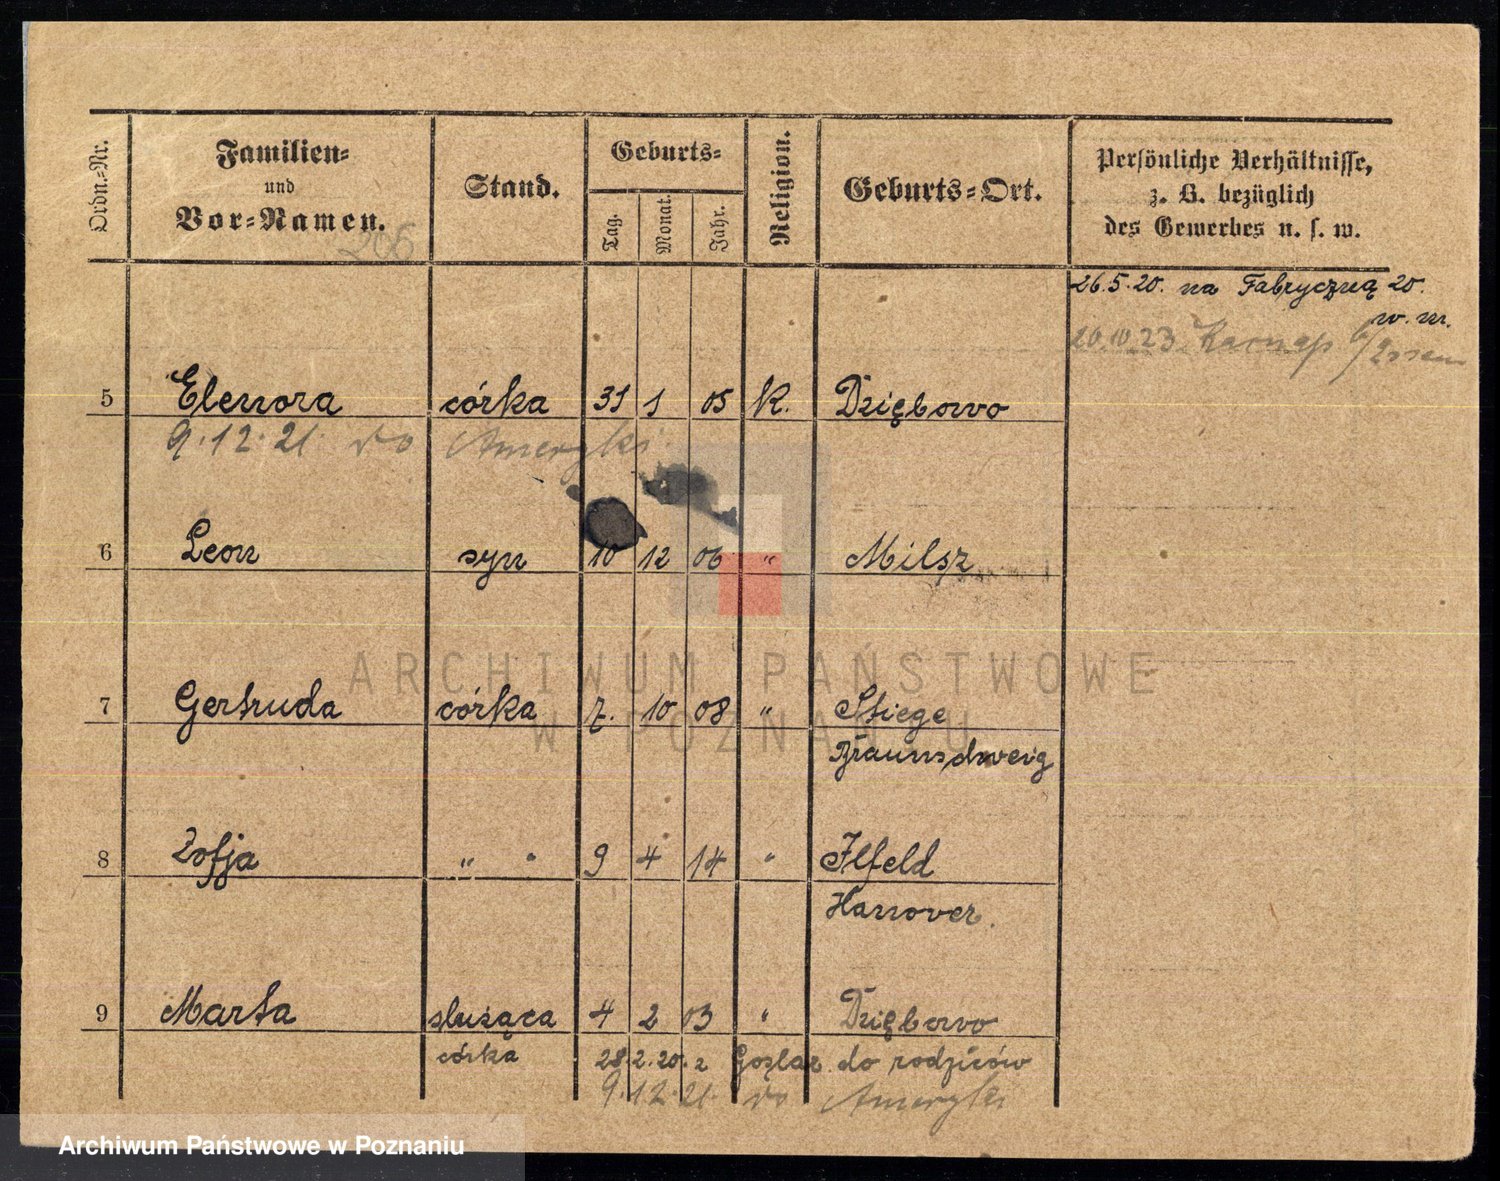 Ordn.-Nr.
Familien-
und
Vor-Namen.
Stand.
Geburts-
Tag.
Monat.
Jahr.
Religion.
Geburts-Ort.
Persönliche Verhältnisse,
z. B. bezüglich
des Gewerbes u. s. w.
206
26.5.20. na Fabryczną 20.
w. m.
20.10.23 Karnap b/Essen
5 Elenora córka 31 1 05 K. Dzięborvo
9.12.21. do Ameryki
6 Leon syn 10 12 06 " Milsz
7 Gertruda córka 7. 10 08 " Stiege
Braunschweig
8 Zofja " " 9 4 14 " Ilfeld
Hannover.
9 Marta służąca 4 2 03 " Dzięborvo
córka 28.2.20. z Goslar do rodziców
9.12.21. do Ameryki
ARCHIWUM PAŃSTWOWE
W POZNANIU
Archiwum Państwowe w Poznaniu